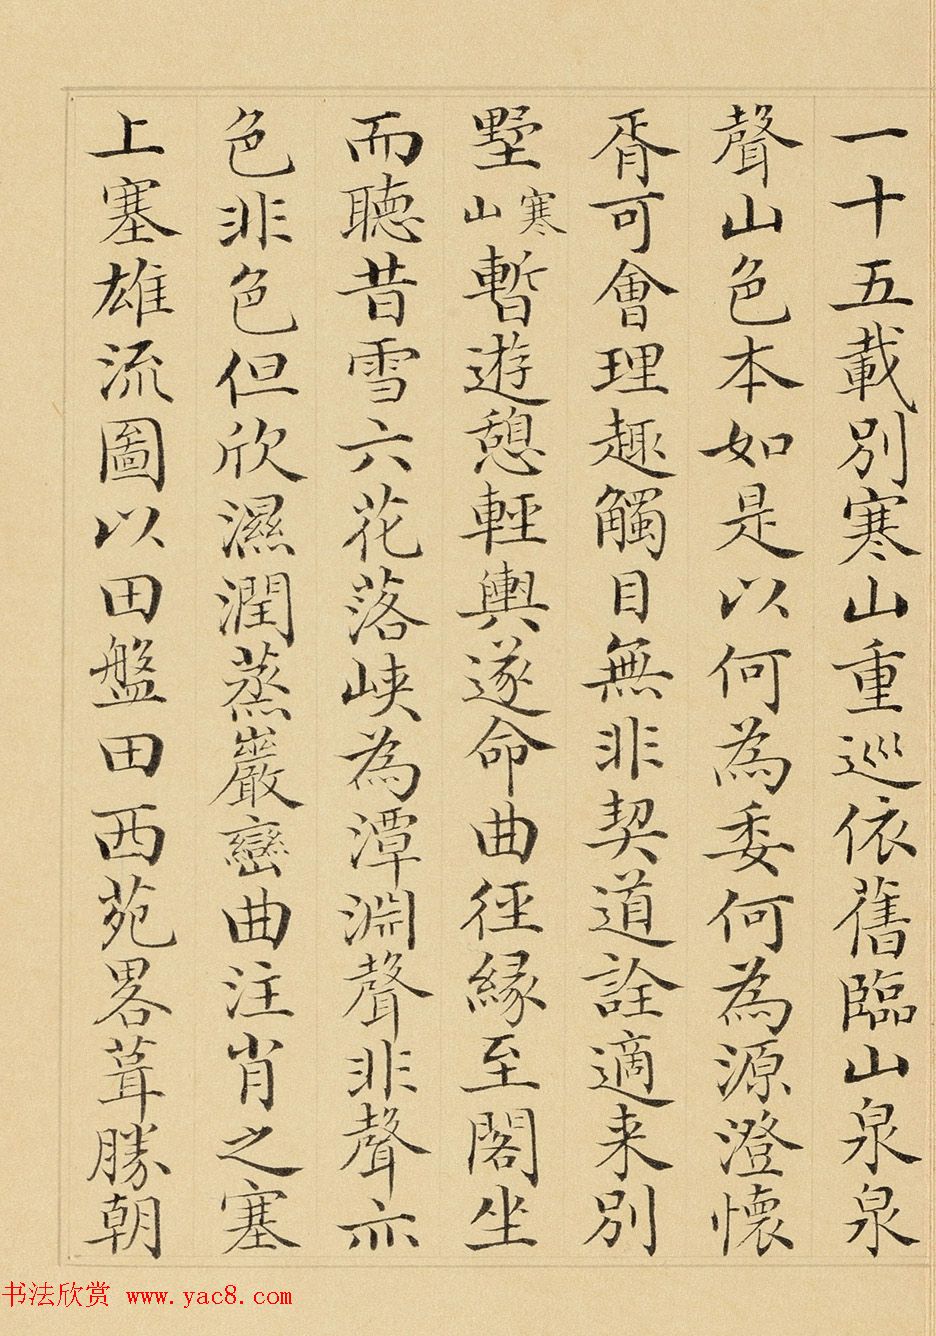 一十五載別寒山重巡依舊臨山泉泉
聲山色本如是以何為委何為源澄懷
胥可會理趣觸目無非契道詮適来別
墅寒山暫遊憩輕輿遂命曲徑縁至閣坐
而聽昔雪六花落峽為潭淵聲非聲亦
色非色但欣濕潤蒸巖巒曲注肖之塞
上塞雄流圖以田盤田西苑畧葺勝朝
书法欣赏 www.yac8.com